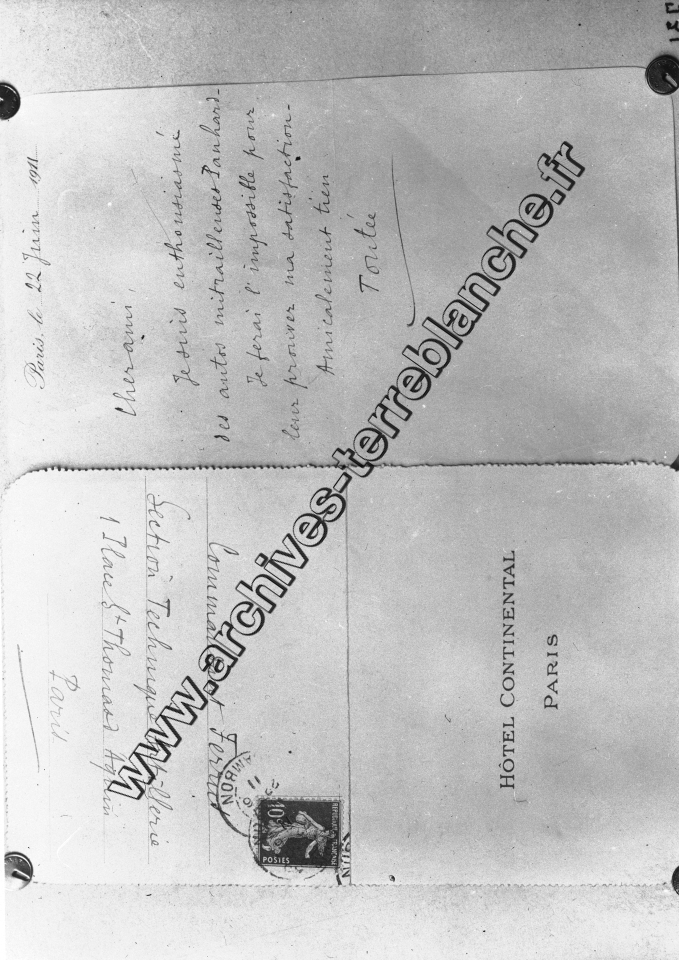 Paris, le 22 Juin 1911
Cher ami,
Je suis enthousiasmé
des autos mitrailleuses Panhard-
Je ferai l'impossible pour
leur prouver ma satisfaction-
Amicalement tien
Toutée
Section Technique
1 Place St Thomas
Paris
10
POSTES
HÔTEL CONTINENTAL
PARIS
www.archives-terreblanche.fr